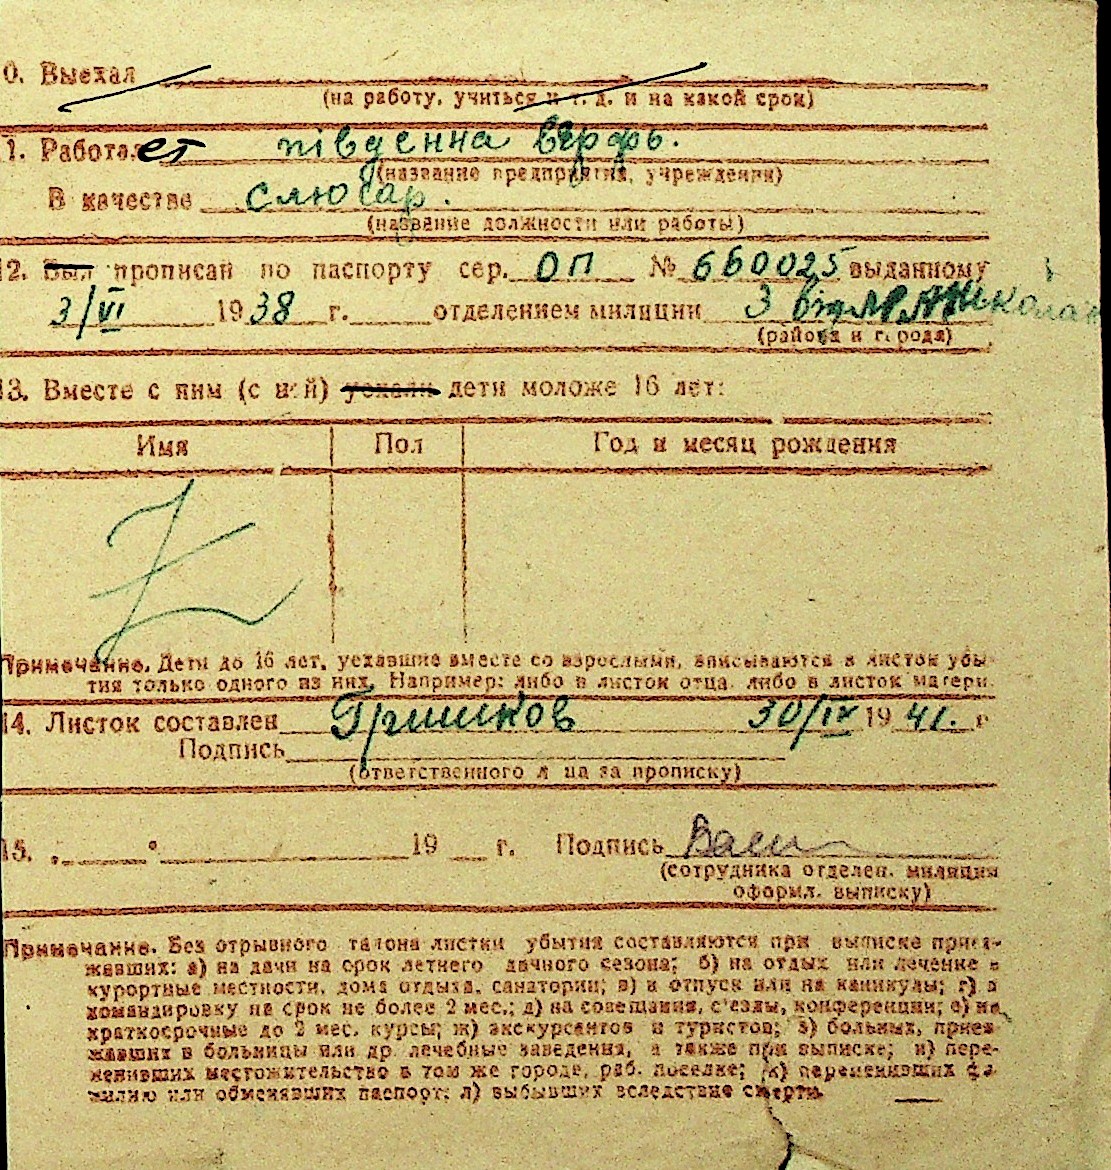 0. Выехал
(на работу, учиться и т. д. и на какой срок)
1. Работает південна верфь.
(название предприятия, учреждения)
В качестве слюсар.
(название должности или работы)
12. Был прописан по паспорту сер. ОП № 660025 выданному
3/VI 1938 г. отделением милиции 3 від. М. Николає
(района и города)
13. Вместе с ним (с ней) уехали дети моложе 16 лет:
Имя Пол Год и месяц рождения
Примечание. Дети до 16 лет, уехавшие вместе со взрослыми, вписываются в листок убы-
тия только одного из них. Например: либо в листок отца, либо в листок матери.
14. Листок составлен Гришков 30/IV 1941. г
Подпись
(ответственного лица за прописку)
15. 19 г. Подпись Васи
(сотрудника отделен. милиции
оформл. выписку)
Примечание. Без отрывного талона листки убытия составляются при выписке приез-
жавших: а) на дачи на срок летнего дачного сезона; б) на отдых или лечение в
курортные местности, дома отдыха, санатории; в) в отпуск или на каникулы; г) в
командировку на срок не более 2 мес.; д) на совещания, с'езды, конференции; е) на
краткосрочные до 2 мес. курсы; ж) экскурсантов и туристов; з) больных, приез
жавших в больницы или др. лечебные заведения, а также при выписке; и) пере-
менивших местожительство в том же городе, раб. поселке; к) переменивших фа
милию или обменявших паспорт; л) выбывших вследствие смерти.